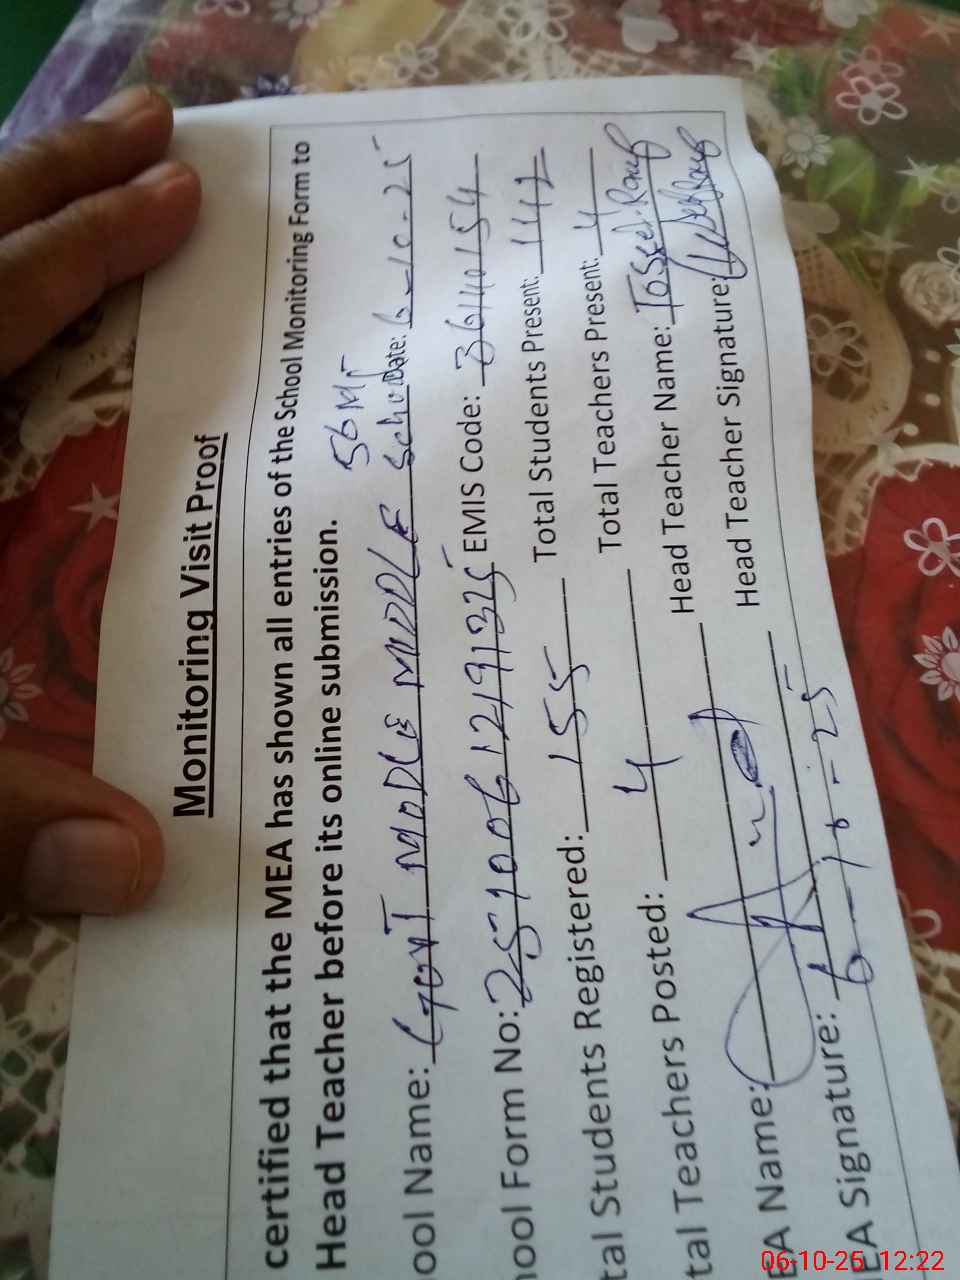 Monitoring Visit Proof
certified that the MEA has shown all entries of the School Monitoring Form to
Head Teacher before its online submission.
ool Name: GOVT MODLE MIDDLE School 56 MF Date: 6-10-25
hool Form No: 25100612191325 EMIS Code: 36140154
tal Students Registered: 155 Total Students Present: 147
tal Teachers Posted: 4 Total Teachers Present: 4
EA Name: Head Teacher Name: Rauf
EA Signature: 6-10-25 Head Teacher Signature:
06-10-25 12:22